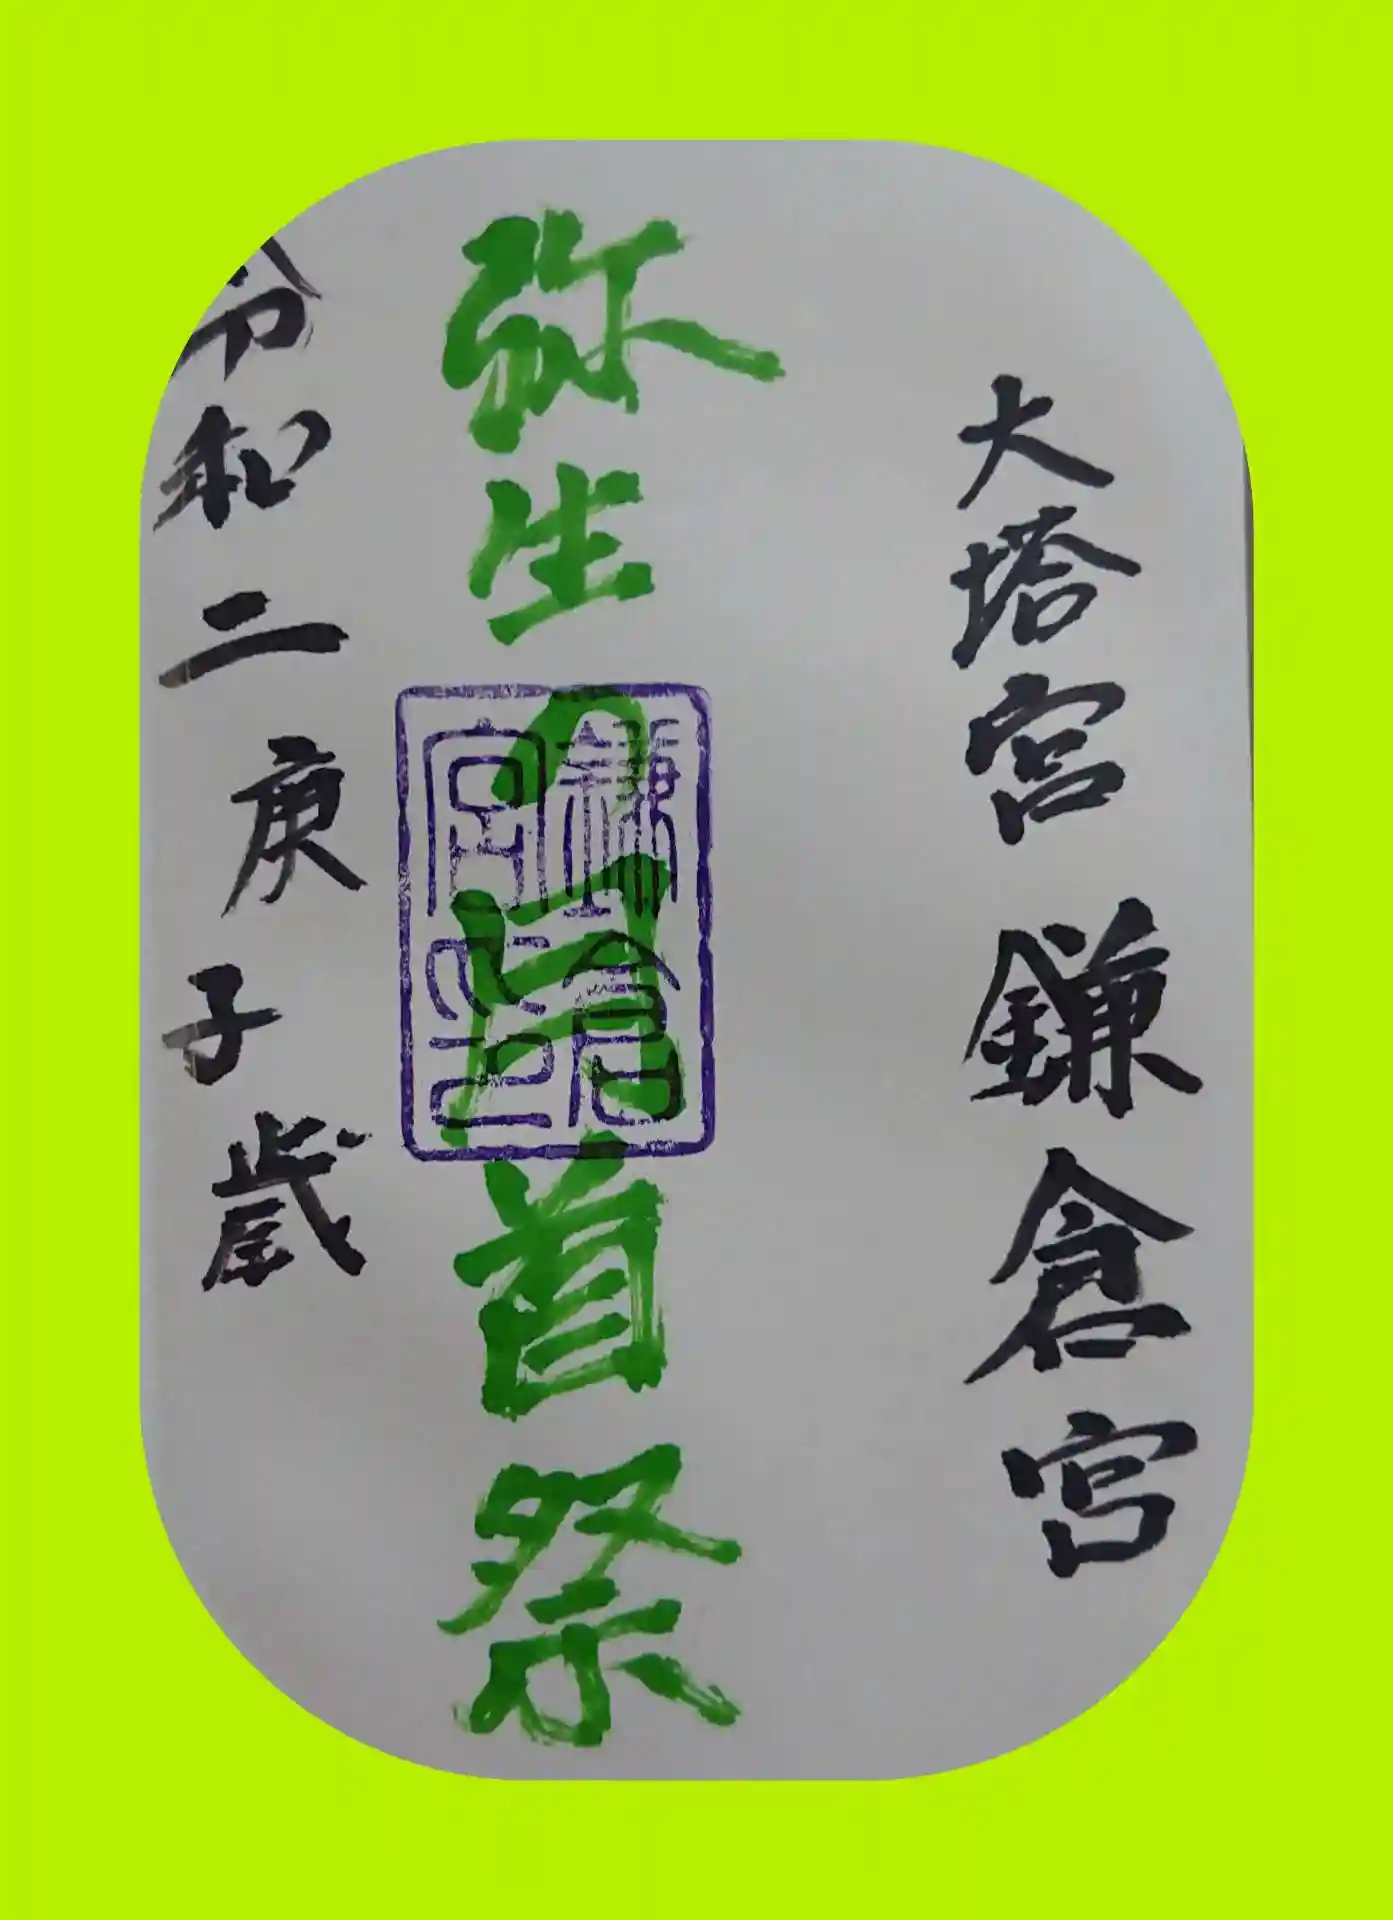 大塔宮 鎌倉宮
弥生の月首祭
鎌倉
宮之印
令和二庚子歳